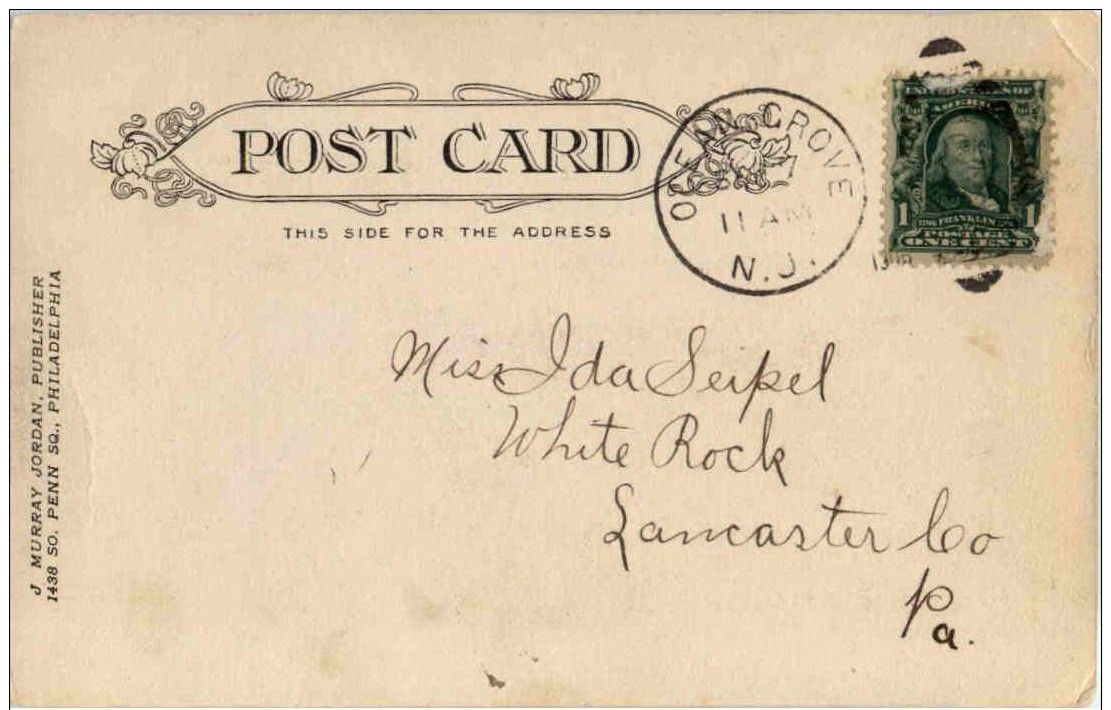 POST CARD
THIS SIDE FOR THE ADDRESS
OCEAN GROVE
11 AM
N. J.
AMERICA
1 FRANKLIN 1
POSTAGE
ONE CENT
Miss Ida Seipel
White Rock
Lancaster Co
Pa.
J MURRAY JORDAN, PUBLISHER
1438 SO. PENN SQ., PHILADELPHIA